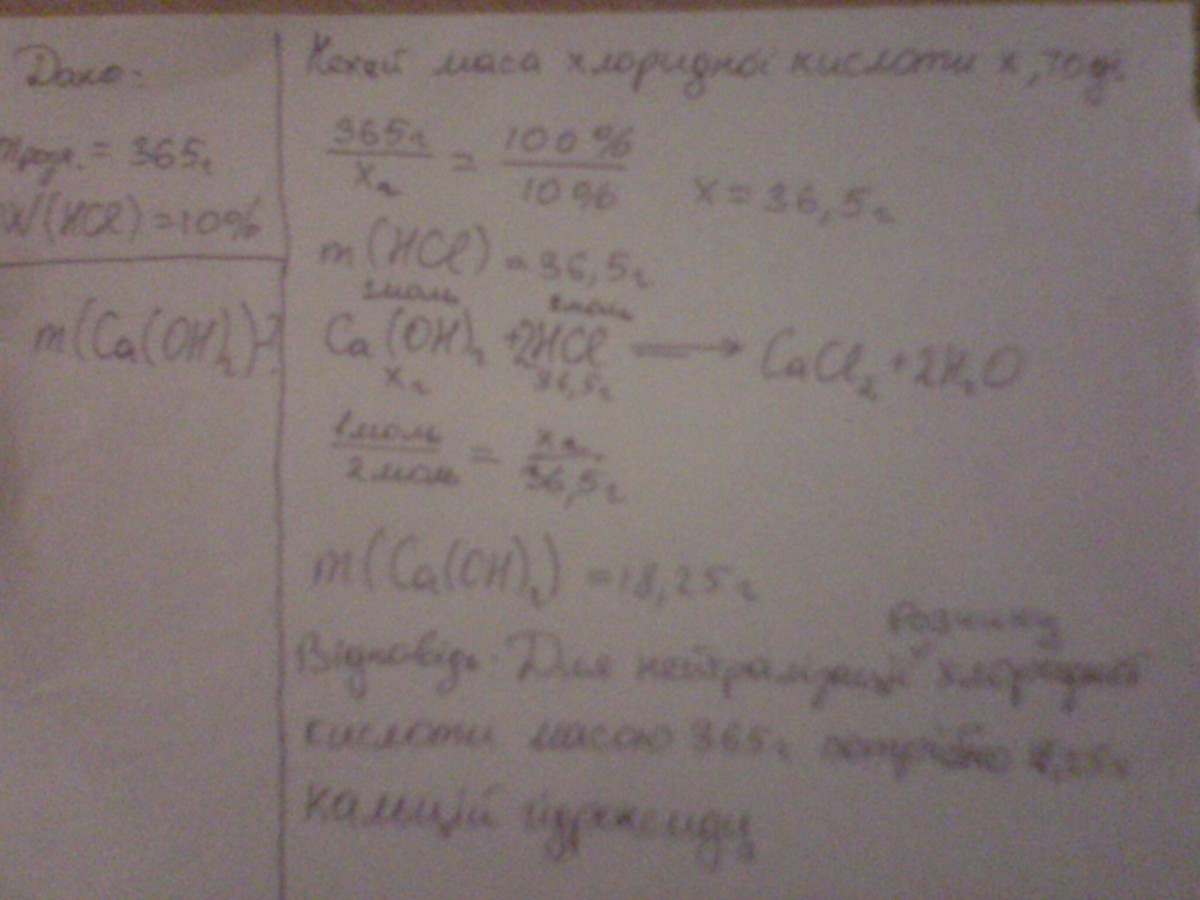 Дано:
mрозч. = 365г
W(HCl) = 10%
m(Ca(OH)₂)-?
Нехай маса хлоридної кислоти x, тоді
365г/xг = 100%/10% x = 36,5г
m(HCl) = 36,5г
1моль 2моль
Ca(OH)₂ + 2HCl ⟶ CaCl₂ + 2H₂O
xг 36,5г
1моль/2моль = xг/36,5г
m(Ca(OH)₂) = 18,25г
розчину
Відповідь. Для нейтралізації хлоридної
кислоти масою 365г потрібно 18,25г
Кальцій гідроксиду